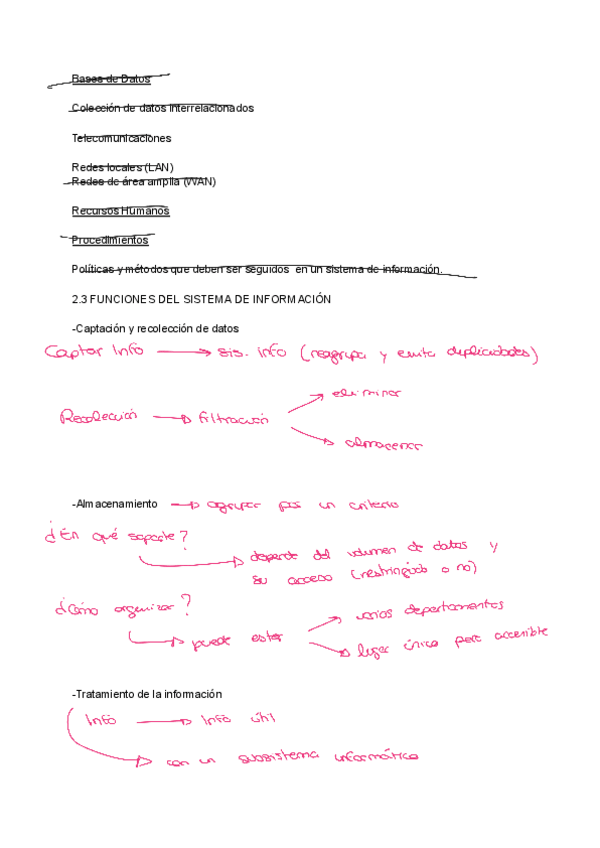 Bases de Datos
Colección de datos interrelacionados
Telecomunicaciones
Redes locales (LAN)
Redes de área amplia (WAN)
Recursos Humanos
Procedimientos
Políticas y métodos que deben ser seguidos en un sistema de información.
2.3 FUNCIONES DEL SISTEMA DE INFORMACIÓN
-Captación y recolección de datos
Captar Info → sis. info (reagrupa y evita duplicidades)
eliminar
Recolección → filtración
almacenar
-Almacenamiento → agrupar por un criterio
¿En qué soporte?
depende del volumen de datos y
su acceso (restringido o no)
¿Cómo organizar?
varios departamentos
puede estar
lugar único pero accesible
-Tratamiento de la información
Info → Info útil
con un subsistema informático